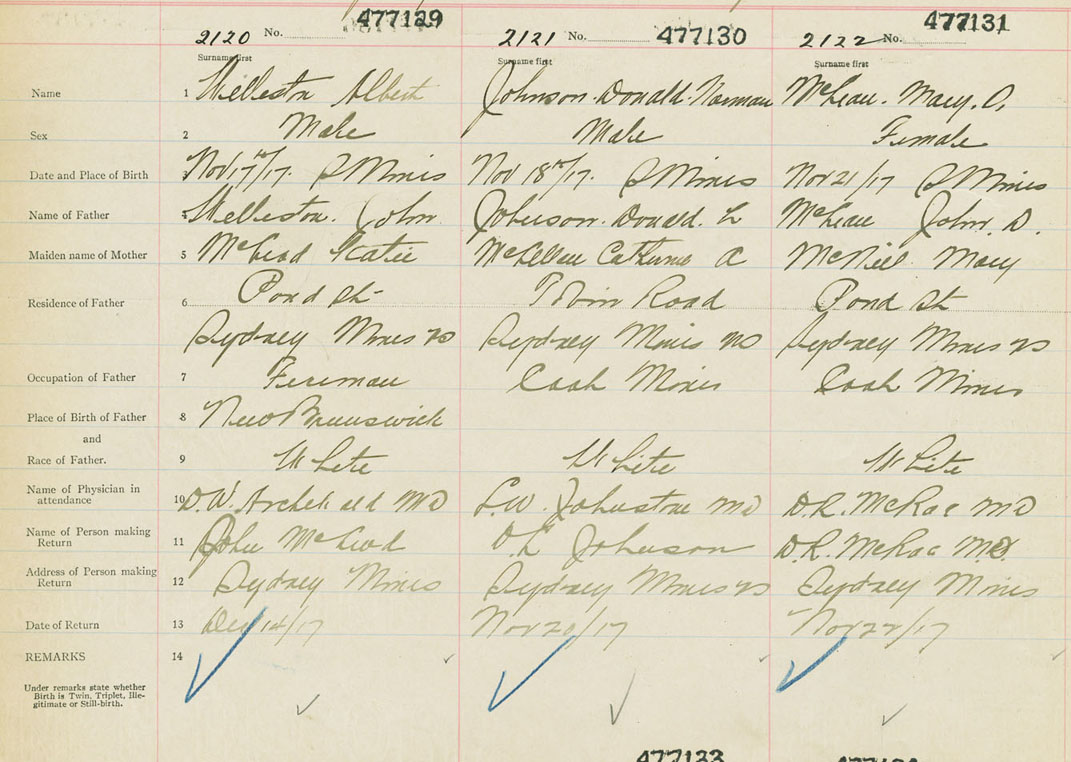 477129 477130 477131
2120 No. 2121 No. 2122 No.
Surname first Surname first Surname first
Name 1 Albert Johnson. Donald. Norman McLean. Mary. A.
Sex 2 Male Male Female
Date and Place of Birth 3 Nov 17th/17. S Mines Nov 18th/17. S Mines Nov 21/17 S Mines
Name of Father 4 John Johnson. Donald. L McLean John. D.
Maiden name of Mother 5 McLeod Katie McLellan Catherine A McNeil Mary
Residence of Father 6 Pond St Tobin Road Pond St
Sydney Mines NS Sydney Mines NS Sydney Mines NS
Occupation of Father 7 Fireman Coal Miner Coal Miner
Place of Birth of Father 8 New Brunswick
and
Race of Father. 9 White White White
Name of Physician in
attendance 10 D.W. Archibald MD L.W. Johnstone MD D.R. McRae MD
Name of Person making
Return 11 John McLeod D.L Johnson D.R. McRae MD
Address of Person making
Return 12 Sydney Mines Sydney Mines NS Sydney Mines
Date of Return 13 Dec 14/17 Nov 20/17 Nov 22/17
REMARKS 14
Under remarks state whether
Birth is Twin, Triplet, Ille-
gitimate or Still-birth.
477133